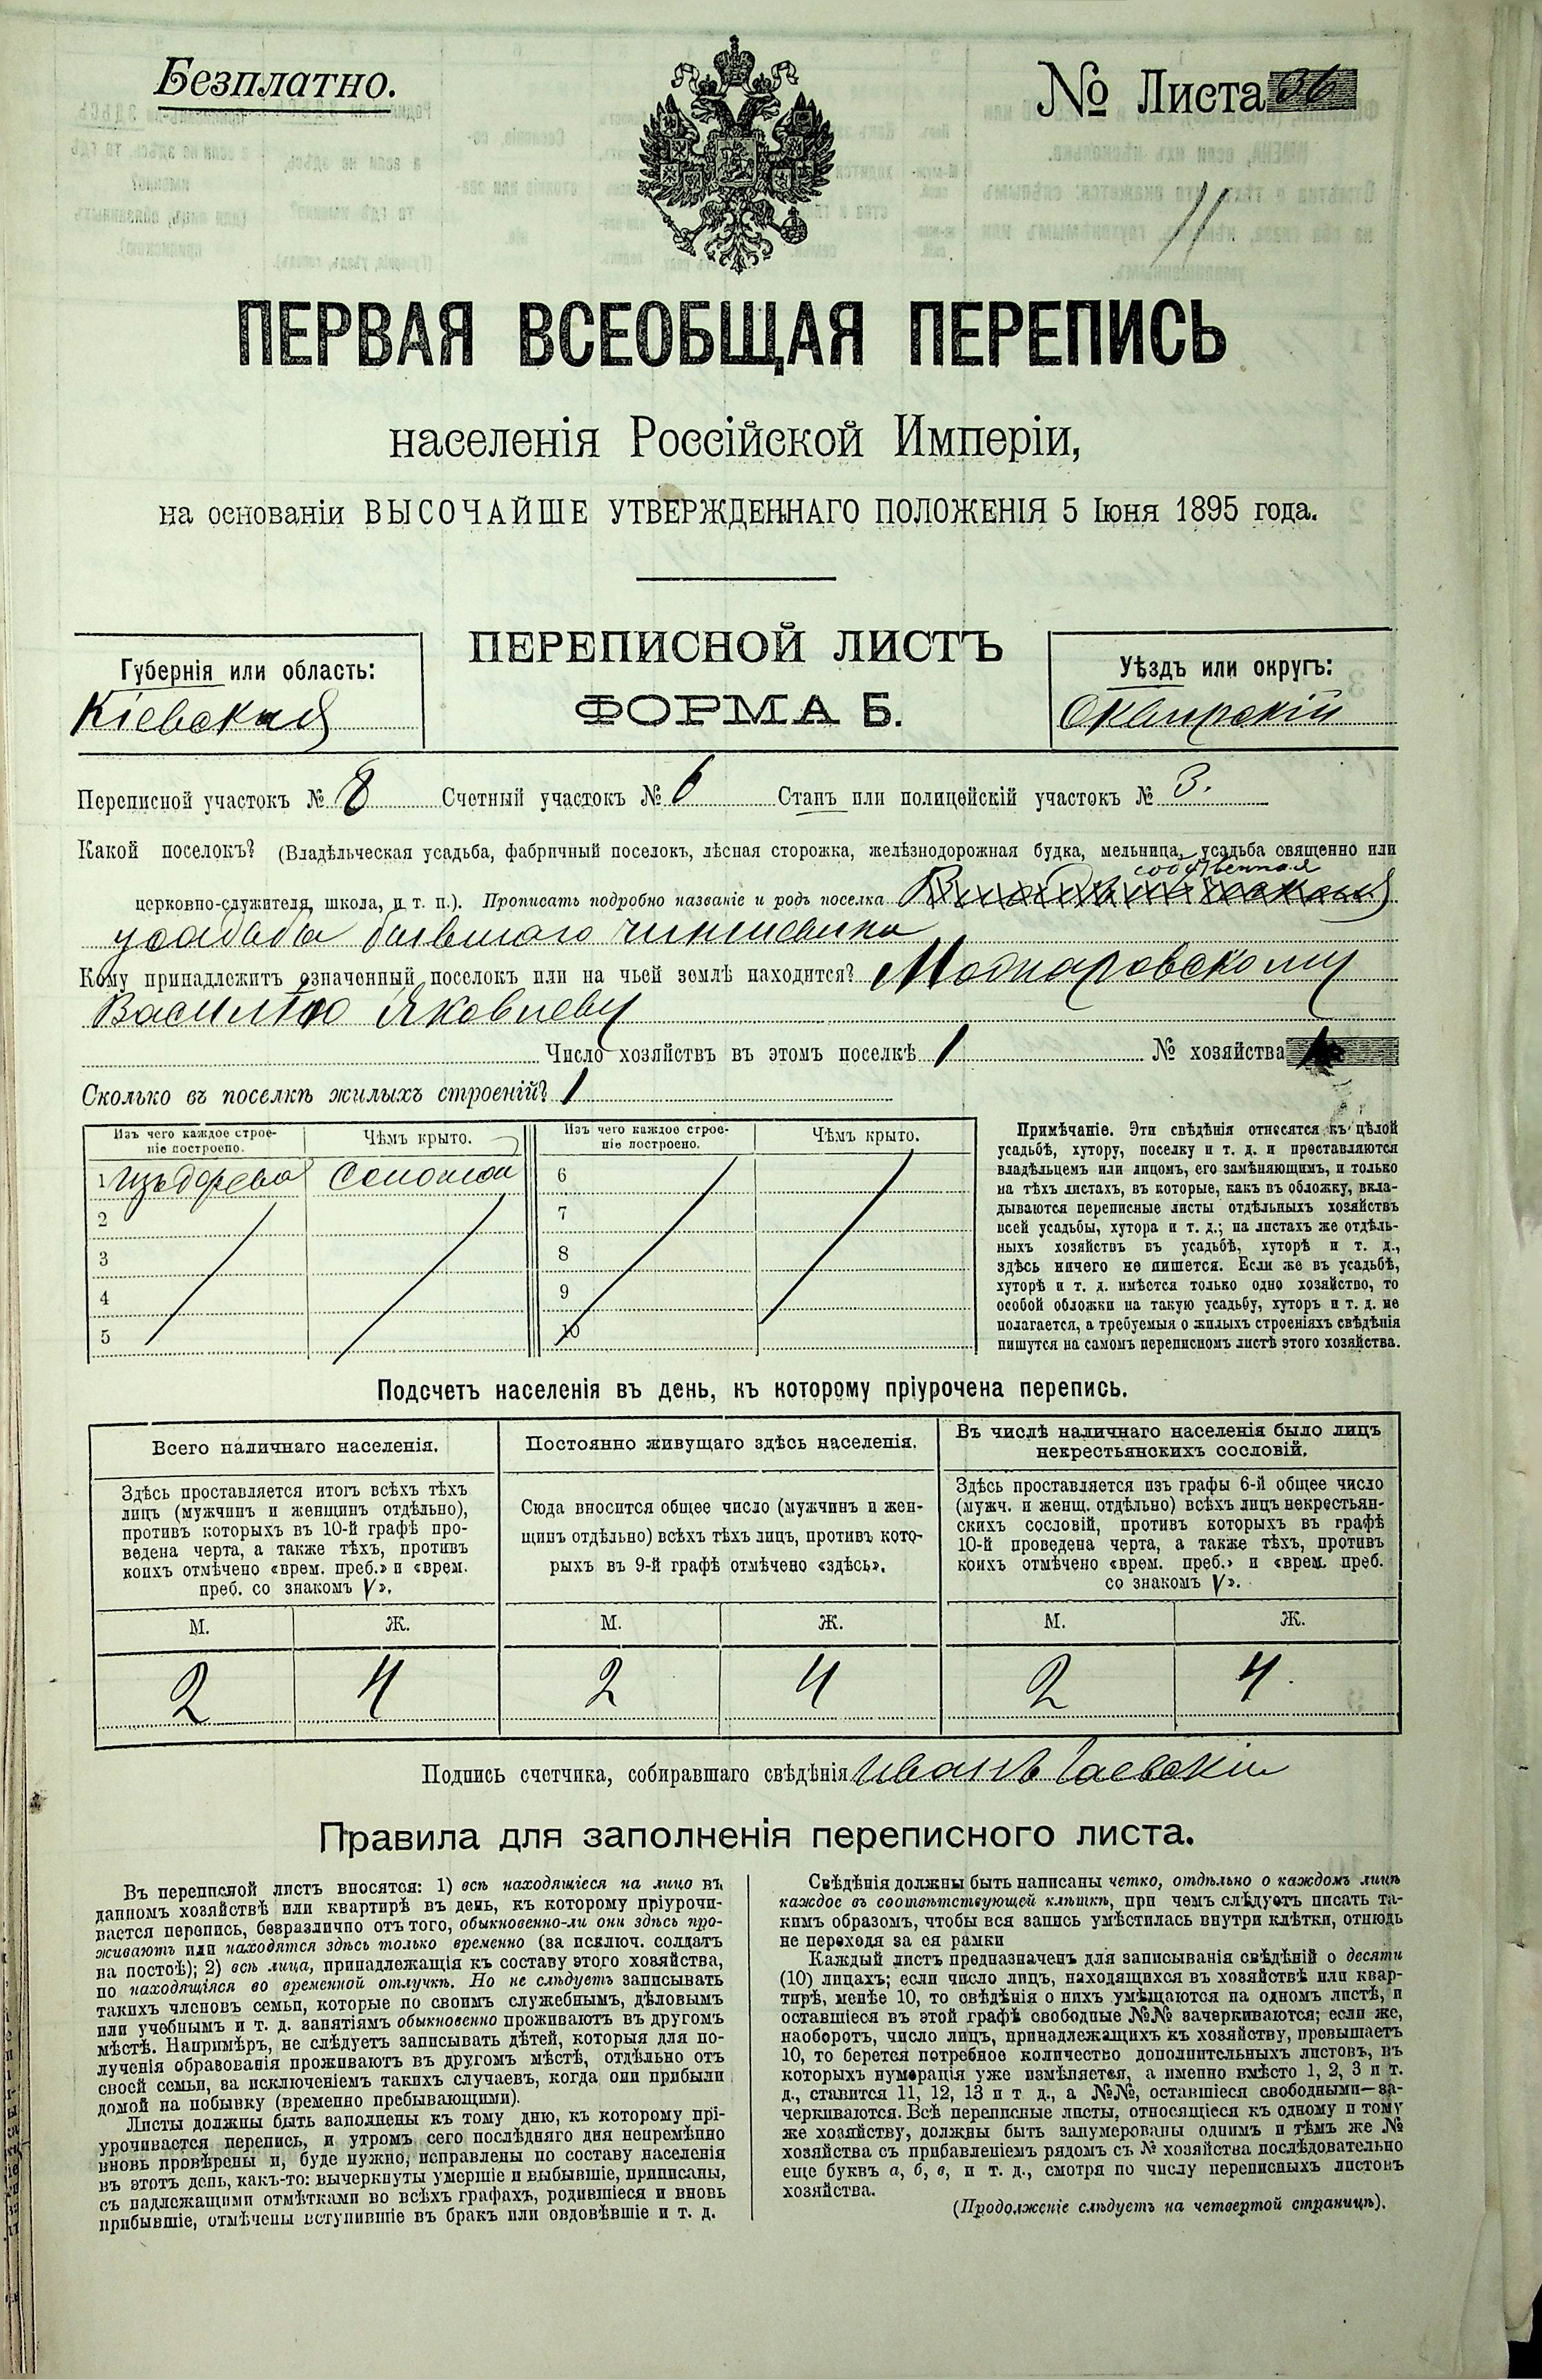 Безплатно.
№ Листа 36
11
ПЕРВАЯ ВСЕОБЩАЯ ПЕРЕПИСЬ
населенія Россійской Имперіи,
на основаніи ВЫСОЧАЙШЕ УТВЕРЖДЕННАГО ПОЛОЖЕНІЯ 5 Іюня 1895 года.
ПЕРЕПИСНОЙ ЛИСТЪ
ФОРМА Б.
Губернія или область:
Кіевская
Уѣздъ или округъ:
Сквирскій
Переписной участокъ № 8 Счетный участокъ № 6 Станъ или полицейскій участокъ № 3.
Какой поселокъ? (Владѣльческая усадьба, фабричный поселокъ, лѣсная сторожка, желѣзнодорожная будка, мельница, усадьба священно или
собственная
церковно-служителя, школа, и т. п.). Прописать подробно названіе и родъ поселка
усадьба бывшаго чиншевика
Кому принадлежитъ означенный поселокъ или на чьей землѣ находится?
Василію Яковлеву
Число хозяйствъ въ этомъ поселкѣ 1 № хозяйства 1
Сколько въ поселкѣ жилыхъ строеній? 1
Изъ чего каждое строе-
ніе построено.
Чѣмъ крыто.
Изъ чего каждое строе-
ніе построено.
Чѣмъ крыто.
1 Изъ дерева Соломой 6
2 7
3 8
4 9
5 10
Примѣчаніе. Эти свѣдѣнія относятся къ цѣлой
усадьбѣ, хутору, поселку и т. д. и проставляются
владѣльцемъ или лицомъ, его замѣняющимъ, и только
на тѣхъ листахъ, въ которые, какъ въ обложку, вкла-
дываются переписные листы отдѣльныхъ хозяйствъ
всей усадьбы, хутора и т. д.; на листахъ же отдѣль-
ныхъ хозяйствъ въ усадьбѣ, хуторѣ и т. д.,
здѣсь ничего не пишется. Если же въ усадьбѣ,
хуторѣ и т. д. имѣется только одно хозяйство, то
особой обложки на такую усадьбу, хуторъ и т. д. не
полагается, а требуемыя о жилыхъ строеніяхъ свѣдѣнія
пишутся на самомъ переписномъ листѣ этого хозяйства.
Подсчетъ населенія въ день, къ которому пріурочена перепись.
Всего наличнаго населенія.
Здѣсь проставляется итогъ всѣхъ тѣхъ
лицъ (мужчинъ и женщинъ отдѣльно),
противъ которыхъ въ 10-й графѣ про-
ведена черта, а также тѣхъ, противъ
коихъ отмѣчено «врем. преб.» и «врем.
преб. со знакомъ V».
Постоянно живущаго здѣсь населенія.
Сюда вносится общее число (мужчинъ и жен-
щинъ отдѣльно) всѣхъ тѣхъ лицъ, противъ кото-
рыхъ въ 9-й графѣ отмѣчено «здѣсь».
Въ числѣ наличнаго населенія было лицъ
некрестьянскихъ сословій.
Здѣсь проставляется изъ графы 6-й общее число
(мужч. и женщ. отдѣльно) всѣхъ лицъ некрестьян-
скихъ сословій, противъ которыхъ въ графѣ
10-й проведена черта, а также тѣхъ, противъ
коихъ отмѣчено «врем. преб.» и «врем. преб.
со знакомъ V».
М. Ж. М. Ж. М. Ж.
2 4 2 4 2 4
Подпись счетчика, собиравшаго свѣдѣнія Иванъ Гаевскій
Правила для заполненія переписного листа.
Въ переписной листъ вносятся: 1) всѣ находящіеся на лицо въ
данномъ хозяйствѣ или квартирѣ въ день, къ которому пріурочи-
вается перепись, безразлично отъ того, обыкновенно-ли они здѣсь про-
живаютъ или находятся здѣсь только временно (за исключ. солдатъ
на постоѣ); 2) всѣ лица, принадлежащія къ составу этого хозяйства,
но находящіяся во временной отлучкѣ. Но не слѣдуетъ записывать
такихъ членовъ семьи, которые по своимъ служебнымъ, дѣловымъ
или учебнымъ и т. д. занятіямъ обыкновенно проживаютъ въ другомъ
мѣстѣ. Напримѣръ, не слѣдуетъ записывать дѣтей, которыя для по-
лученія образованія проживаютъ въ другомъ мѣстѣ, отдѣльно отъ
своей семьи, за исключеніемъ такихъ случаевъ, когда они прибыли
домой на побывку (временно пребывающими).
Листы должны быть заполнены къ тому дню, къ которому прі-
урочивается перепись, и утромъ сего послѣдняго дня непремѣнно
вновь провѣрены и, буде нужно, исправлены по составу населенія
въ этотъ день, какъ-то: вычеркнуты умершіе и выбывшіе, приписаны,
съ надлежащими отмѣтками во всѣхъ графахъ, родившіеся и вновь
прибывшіе, отмѣчены вступившіе въ бракъ или овдовѣвшіе и т. д.
Свѣдѣнія должны быть написаны четко, отдѣльно о каждомъ лицѣ
каждое въ соотвѣтствующей клѣткѣ, при чемъ слѣдуетъ писать та-
кимъ образомъ, чтобы вся запись умѣстилась внутри клѣтки, отнюдь
не переходя за ея рамки
Каждый листъ предназначенъ для записыванія свѣдѣній о десяти
(10) лицахъ; если число лицъ, находящихся въ хозяйствѣ или квар-
тирѣ, менѣе 10, то свѣдѣнія о нихъ умѣщаются на одномъ листѣ, и
оставшіеся въ этой графѣ свободные №№ зачеркиваются; если же,
наоборотъ, число лицъ, принадлежащихъ къ хозяйству, превышаетъ
10, то берется потребное количество дополнительныхъ листовъ, въ
которыхъ нумерація уже измѣняется, а именно вмѣсто 1, 2, 3 и т.
д., ставится 11, 12, 13 и т д., а №№, оставшіеся свободными—за-
черкиваются. Всѣ переписные листы, относящіеся къ одному и тому
же хозяйству, должны быть занумерованы однимъ и тѣмъ же №
хозяйства съ прибавленіемъ рядомъ съ № хозяйства послѣдовательно
еще буквъ а, б, в, и т. д., смотря по числу переписныхъ листовъ
хозяйства.
(Продолженіе слѣдуетъ на четвертой страницѣ).